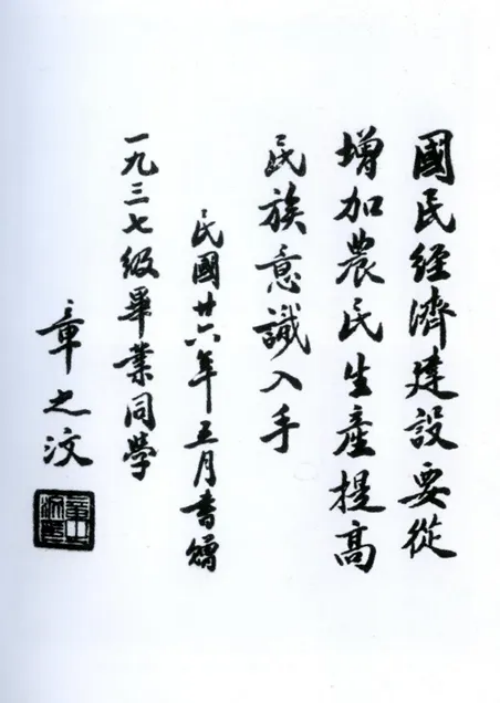 國民經濟建設要從
增加農民生產提高
民族意識入手
民國廿六年五月書贈
一九三七級畢業同學
章之汶